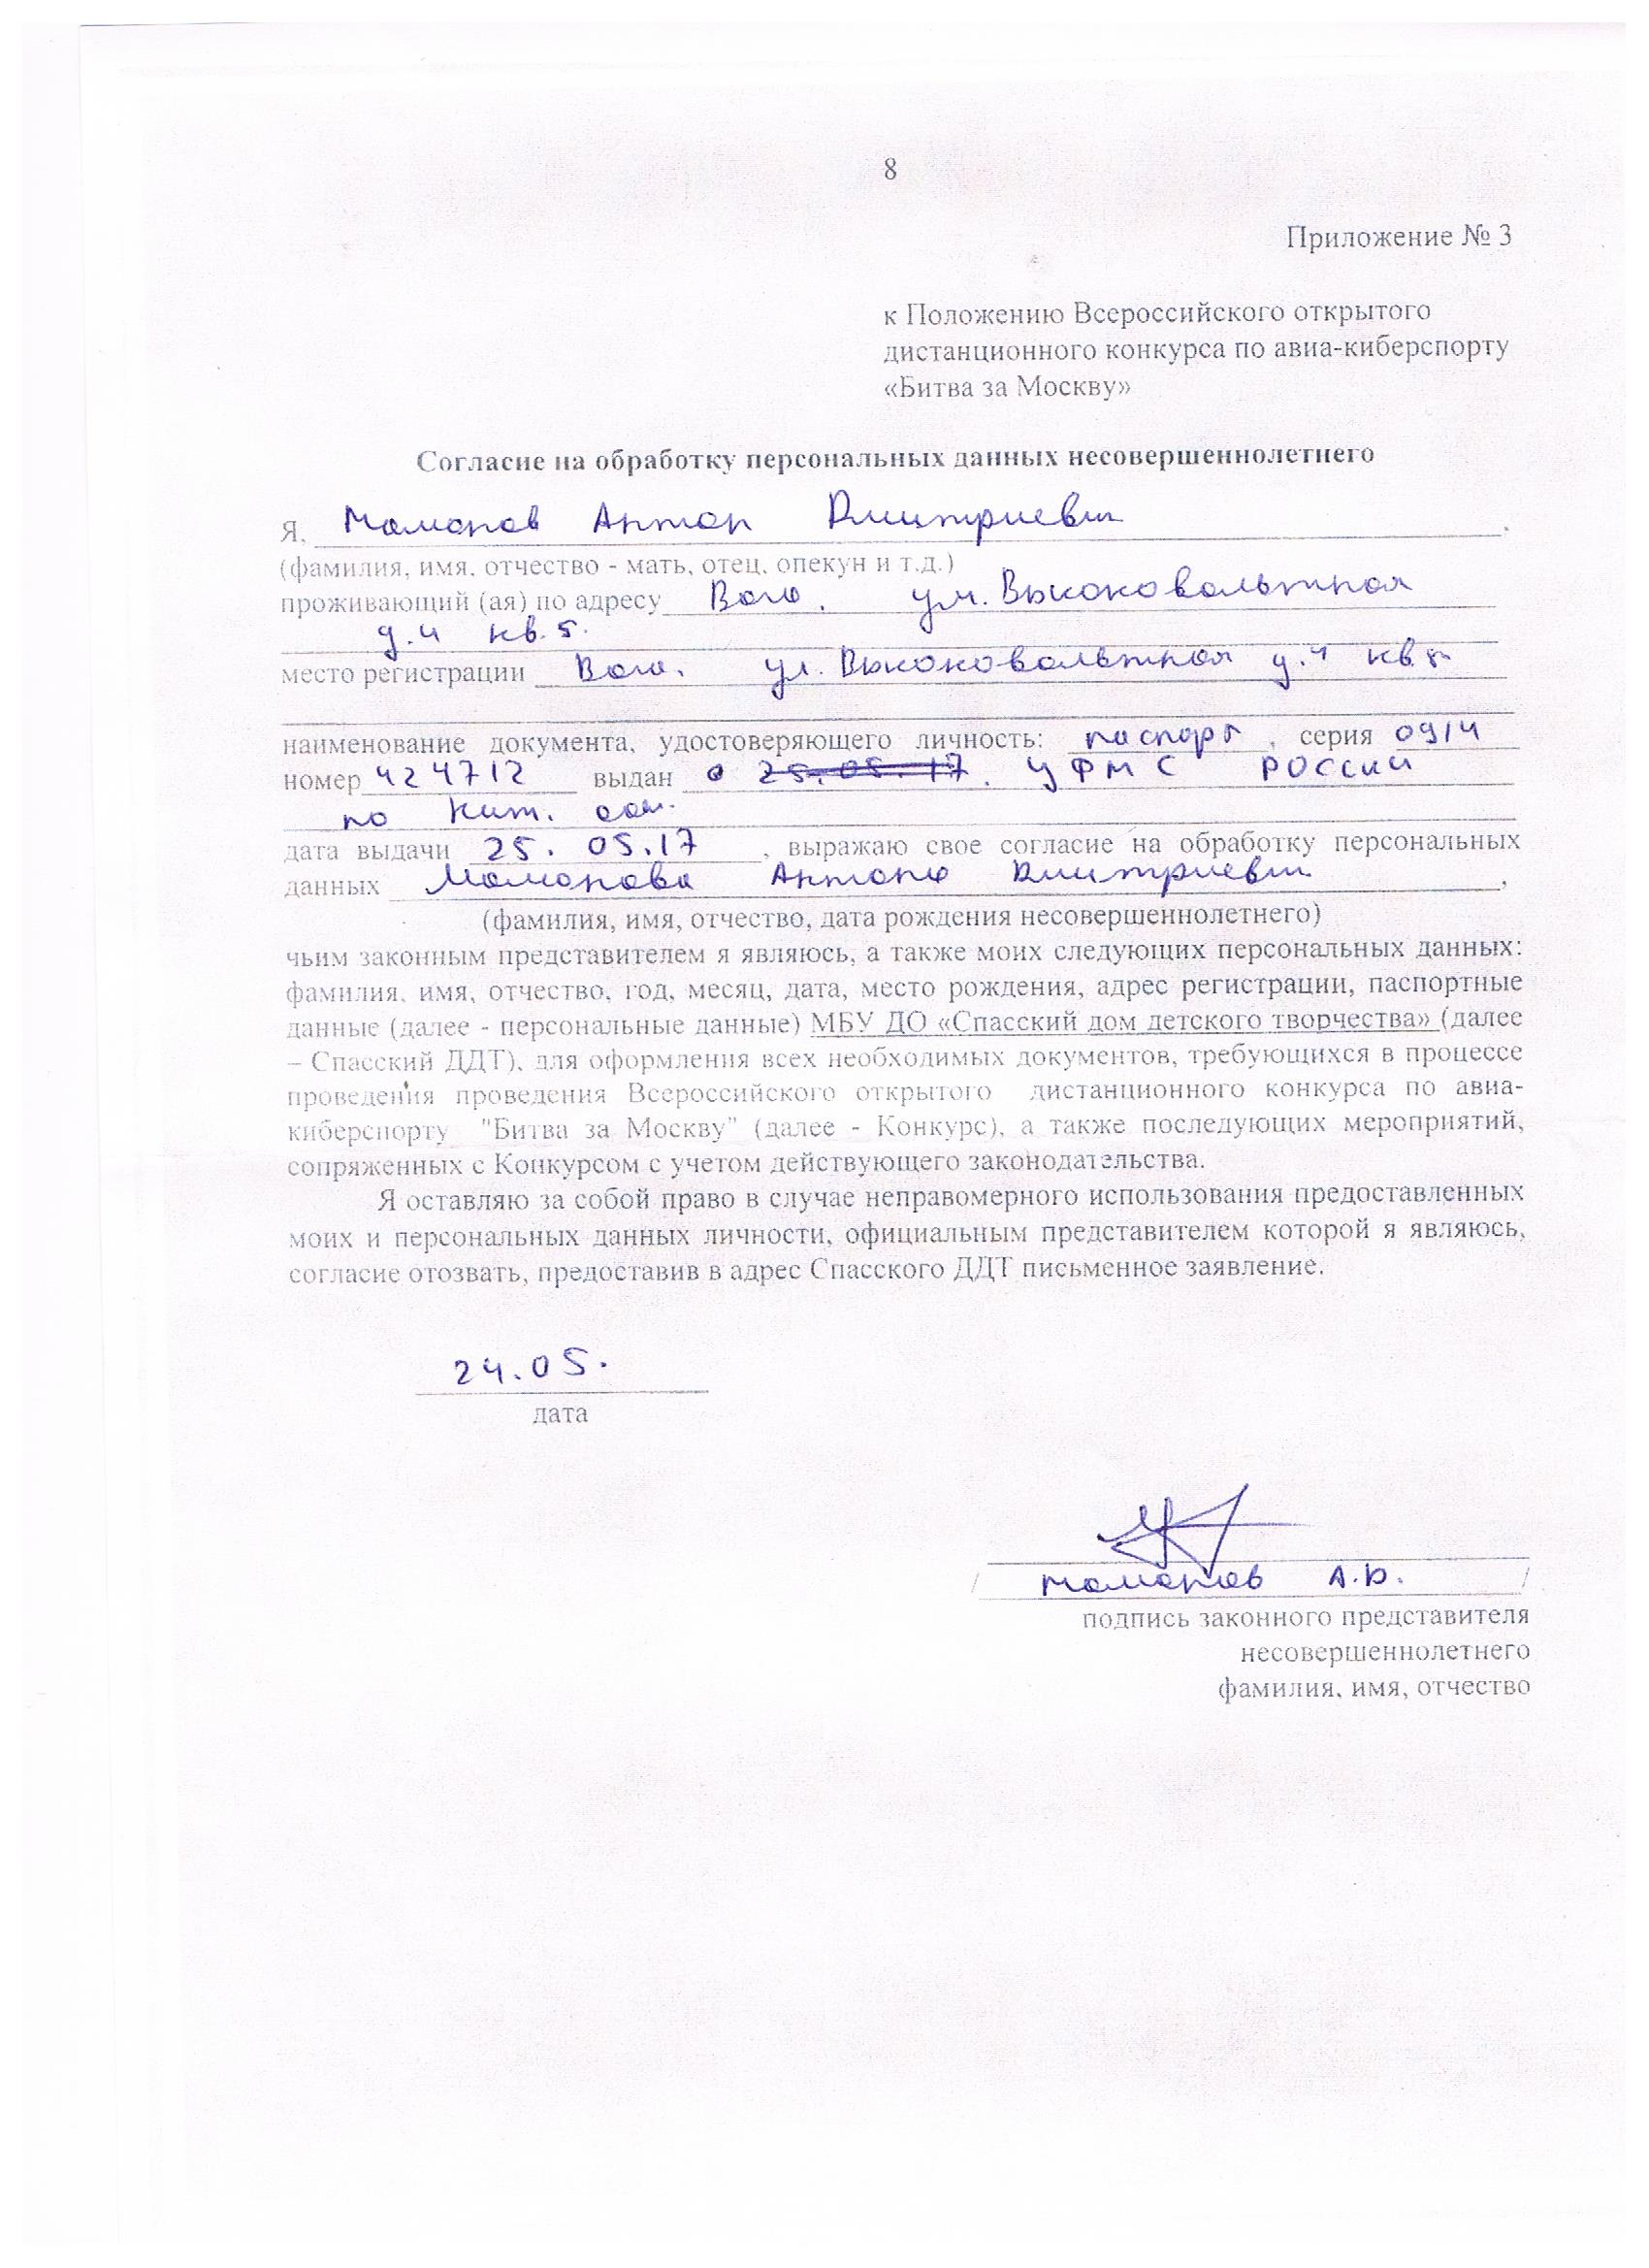 8
Приложение № 3
к Положению Всероссийского открытого
дистанционного конкурса по авиа-киберспорту
«Битва за Москву»
Согласие на обработку персональных данных несовершеннолетнего
Я, Мамонов Антон Дмитриевич,
(фамилия, имя, отчество - мать, отец, опекун и т.д.)
проживающий (ая) по адресу ул. Высоковольтная
д.4 кв.5.
место регистрации ул. Высоковольтная д.4 кв 5
наименование документа, удостоверяющего личность: паспорт, серия 0914
номер 424712 выдан 25.05.17. УФМС РОССИИ
по
дата выдачи 25.05.17, выражаю свое согласие на обработку персональных
данных Мамонова Антона Дмитриевич,
(фамилия, имя, отчество, дата рождения несовершеннолетнего)
чьим законным представителем я являюсь, а также моих следующих персональных данных:
фамилия, имя, отчество, год, месяц, дата, место рождения, адрес регистрации, паспортные
данные (далее - персональные данные) МБУ ДО «Спасский дом детского творчества» (далее
– Спасский ДДТ), для оформления всех необходимых документов, требующихся в процессе
проведения проведения Всероссийского открытого дистанционного конкурса по авиа-
киберспорту "Битва за Москву" (далее - Конкурс), а также последующих мероприятий,
сопряженных с Конкурсом с учетом действующего законодательства.
Я оставляю за собой право в случае неправомерного использования предоставленных
моих и персональных данных личности, официальным представителем которой я являюсь,
согласие отозвать, предоставив в адрес Спасского ДДТ письменное заявление.
24.05.
дата
/ Мамонов А.Д. /
подпись законного представителя
несовершеннолетнего
фамилия, имя, отчество